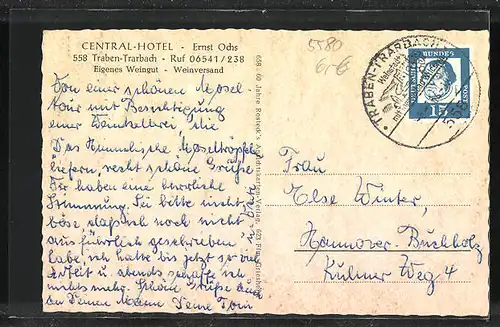 CENTRAL-HOTEL - Ernst Ochs
558 Traben-Trarbach - Ruf 06541/238
Eigenes Weingut - Weinversand
5580
Von einer schönen Mosel-
tour mit Besichtigung
einer Weinkellerei, die
Das Himmlische Moseltröpfel
liefern, recht schöne Grüße
Wir haben eine herrliche
Stimmung. Sei bitte nicht
böse, daß ich noch nicht
ausführlich geschrieben
habe, ich hatte bis jetzt so viel
Arbeit u abends schaffe ich
nichts mehr. Schöne Grüße auch
an Deinen Mann Deine
658 60 Jahre Besteck's Ansichtskarten-Verlag, 623
TRABEN-TRARBACH
DEUTSCHE BUNDESPOST
15
Frau
Else Winter,
Hannover-Buchholz
Kulmer Weg 4